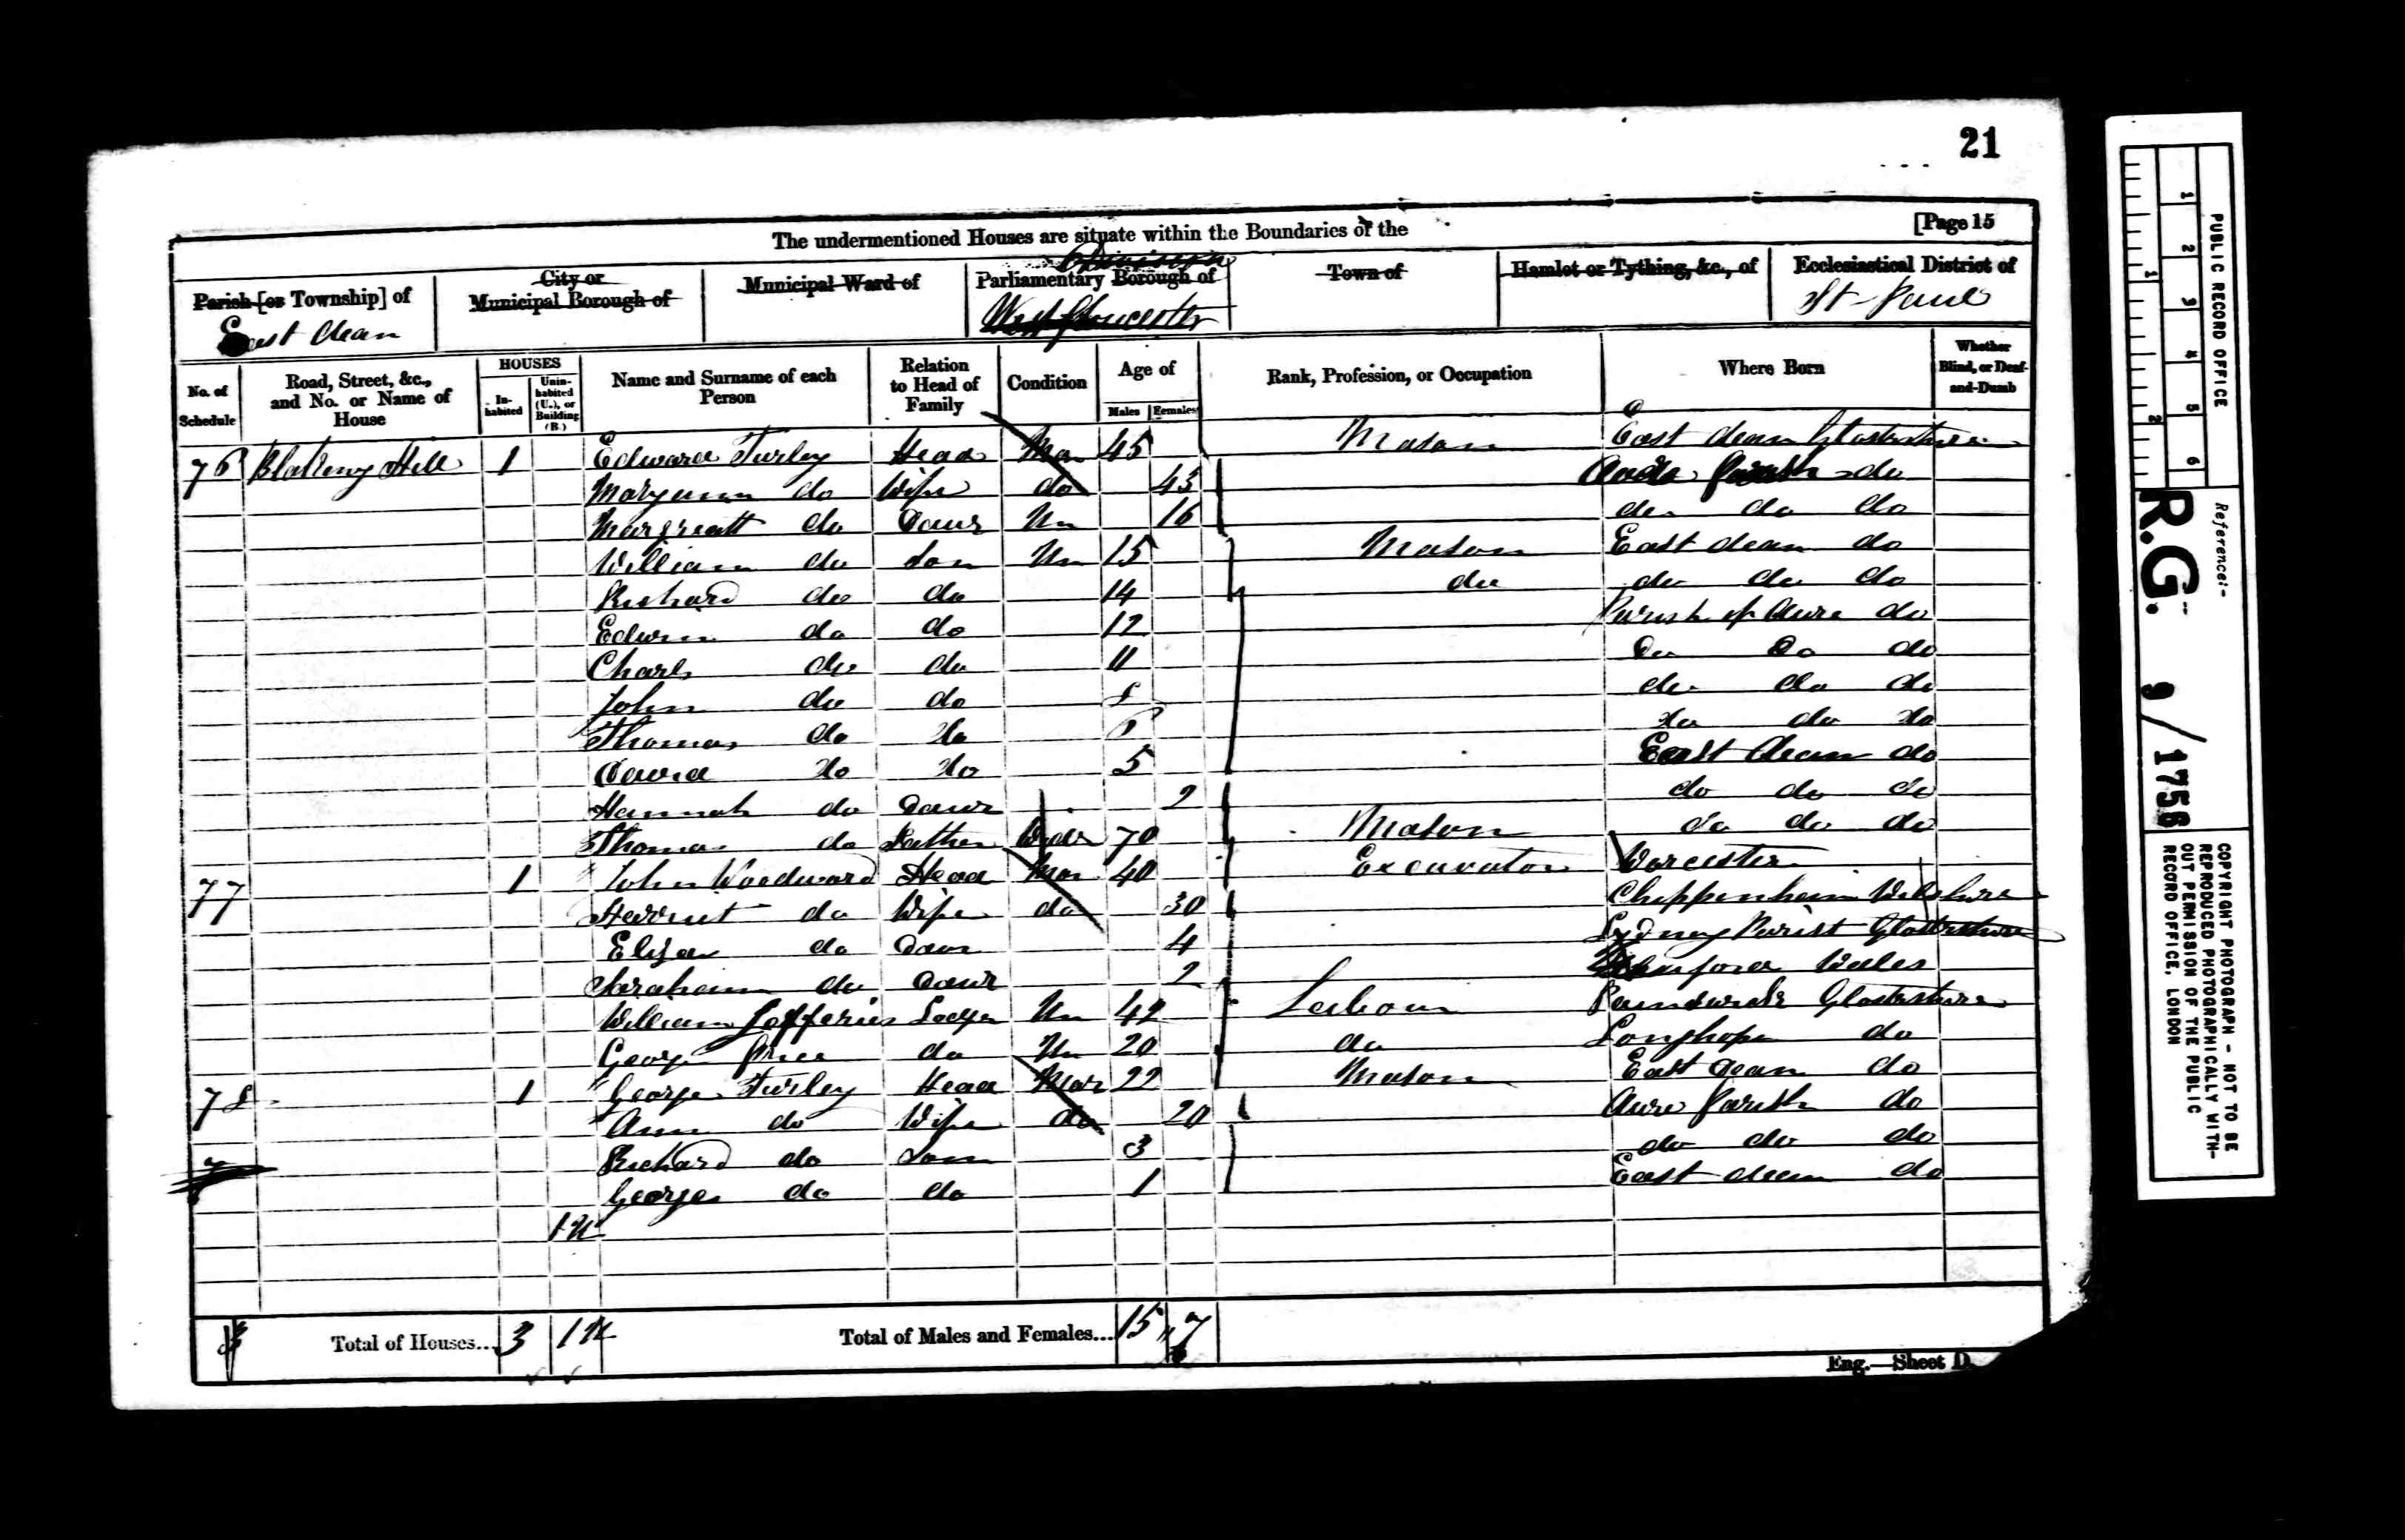 21
[Page 15
The undermentioned Houses are situate within the Boundaries of the
Parish [or Township] of
East Dean
City or
Municipal Borough of
Municipal Ward of
Division
Parliamentary Borough of
West Gloucester
Town of
Hamlet or Tything, &c., of
Ecclesiastical District of
St Paul
No. of Schedule
Road, Street, &c., and No. or Name of House
HOUSES
In-habited
Unin-habited (U.), or Building (B.)
Name and Surname of each Person
Relation to Head of Family
Condition
Age of
Males
Females
Rank, Profession, or Occupation
Where Born
Whether Blind, or Deaf-and-Dumb
76 Blakeny Hill 1 Edward Turley Head Mar 45 Mason East dean Glostershire
Maryann do Wife do 43 Parish do
Margreatt do Daur Un 16 do do do
William do Son Un 15 Mason East dean do
Richard do do 14 do do do do
Edwin do do 12 Parish of Aure do
Charls do do 11 Do Do do
John do do 8 do do do
Thomas do do 6 do do do
David do do 5 East Dean do
Hannah do Daur 2 do do do
Thomas do Father Widr 70 Mason do do do
77 1 John Woodward Head Mar 40 Excavator Worcester
Harriet do Wife do 30 Chippenham Wilshire
Eliza do Daur 4 Lydney Parist Glostershire
do Daur 2 Wales
William Jefferies Lodger Un 42 Labour Glostershire
George Price do Un 20 do Longhope do
78 1 George Turley Head Mar 22 Mason East dean do
Ann do Wife do 20 Aure Parish do
Richard do Son 3 do do do
George do do 1 East dean do
1U
3
Total of Houses... 3 1U
Total of Males and Females... 15 7
Eng.—Sheet D.
PUBLIC RECORD OFFICE
1 2 3 4 5 6
1 2
Reference:-
R.G. 9/1756
COPYRIGHT PHOTOGRAPH - NOT TO BE
REPRODUCED PHOTOGRAPHICALLY WITH-
OUT PERMISSION OF THE PUBLIC
RECORD OFFICE, LONDON